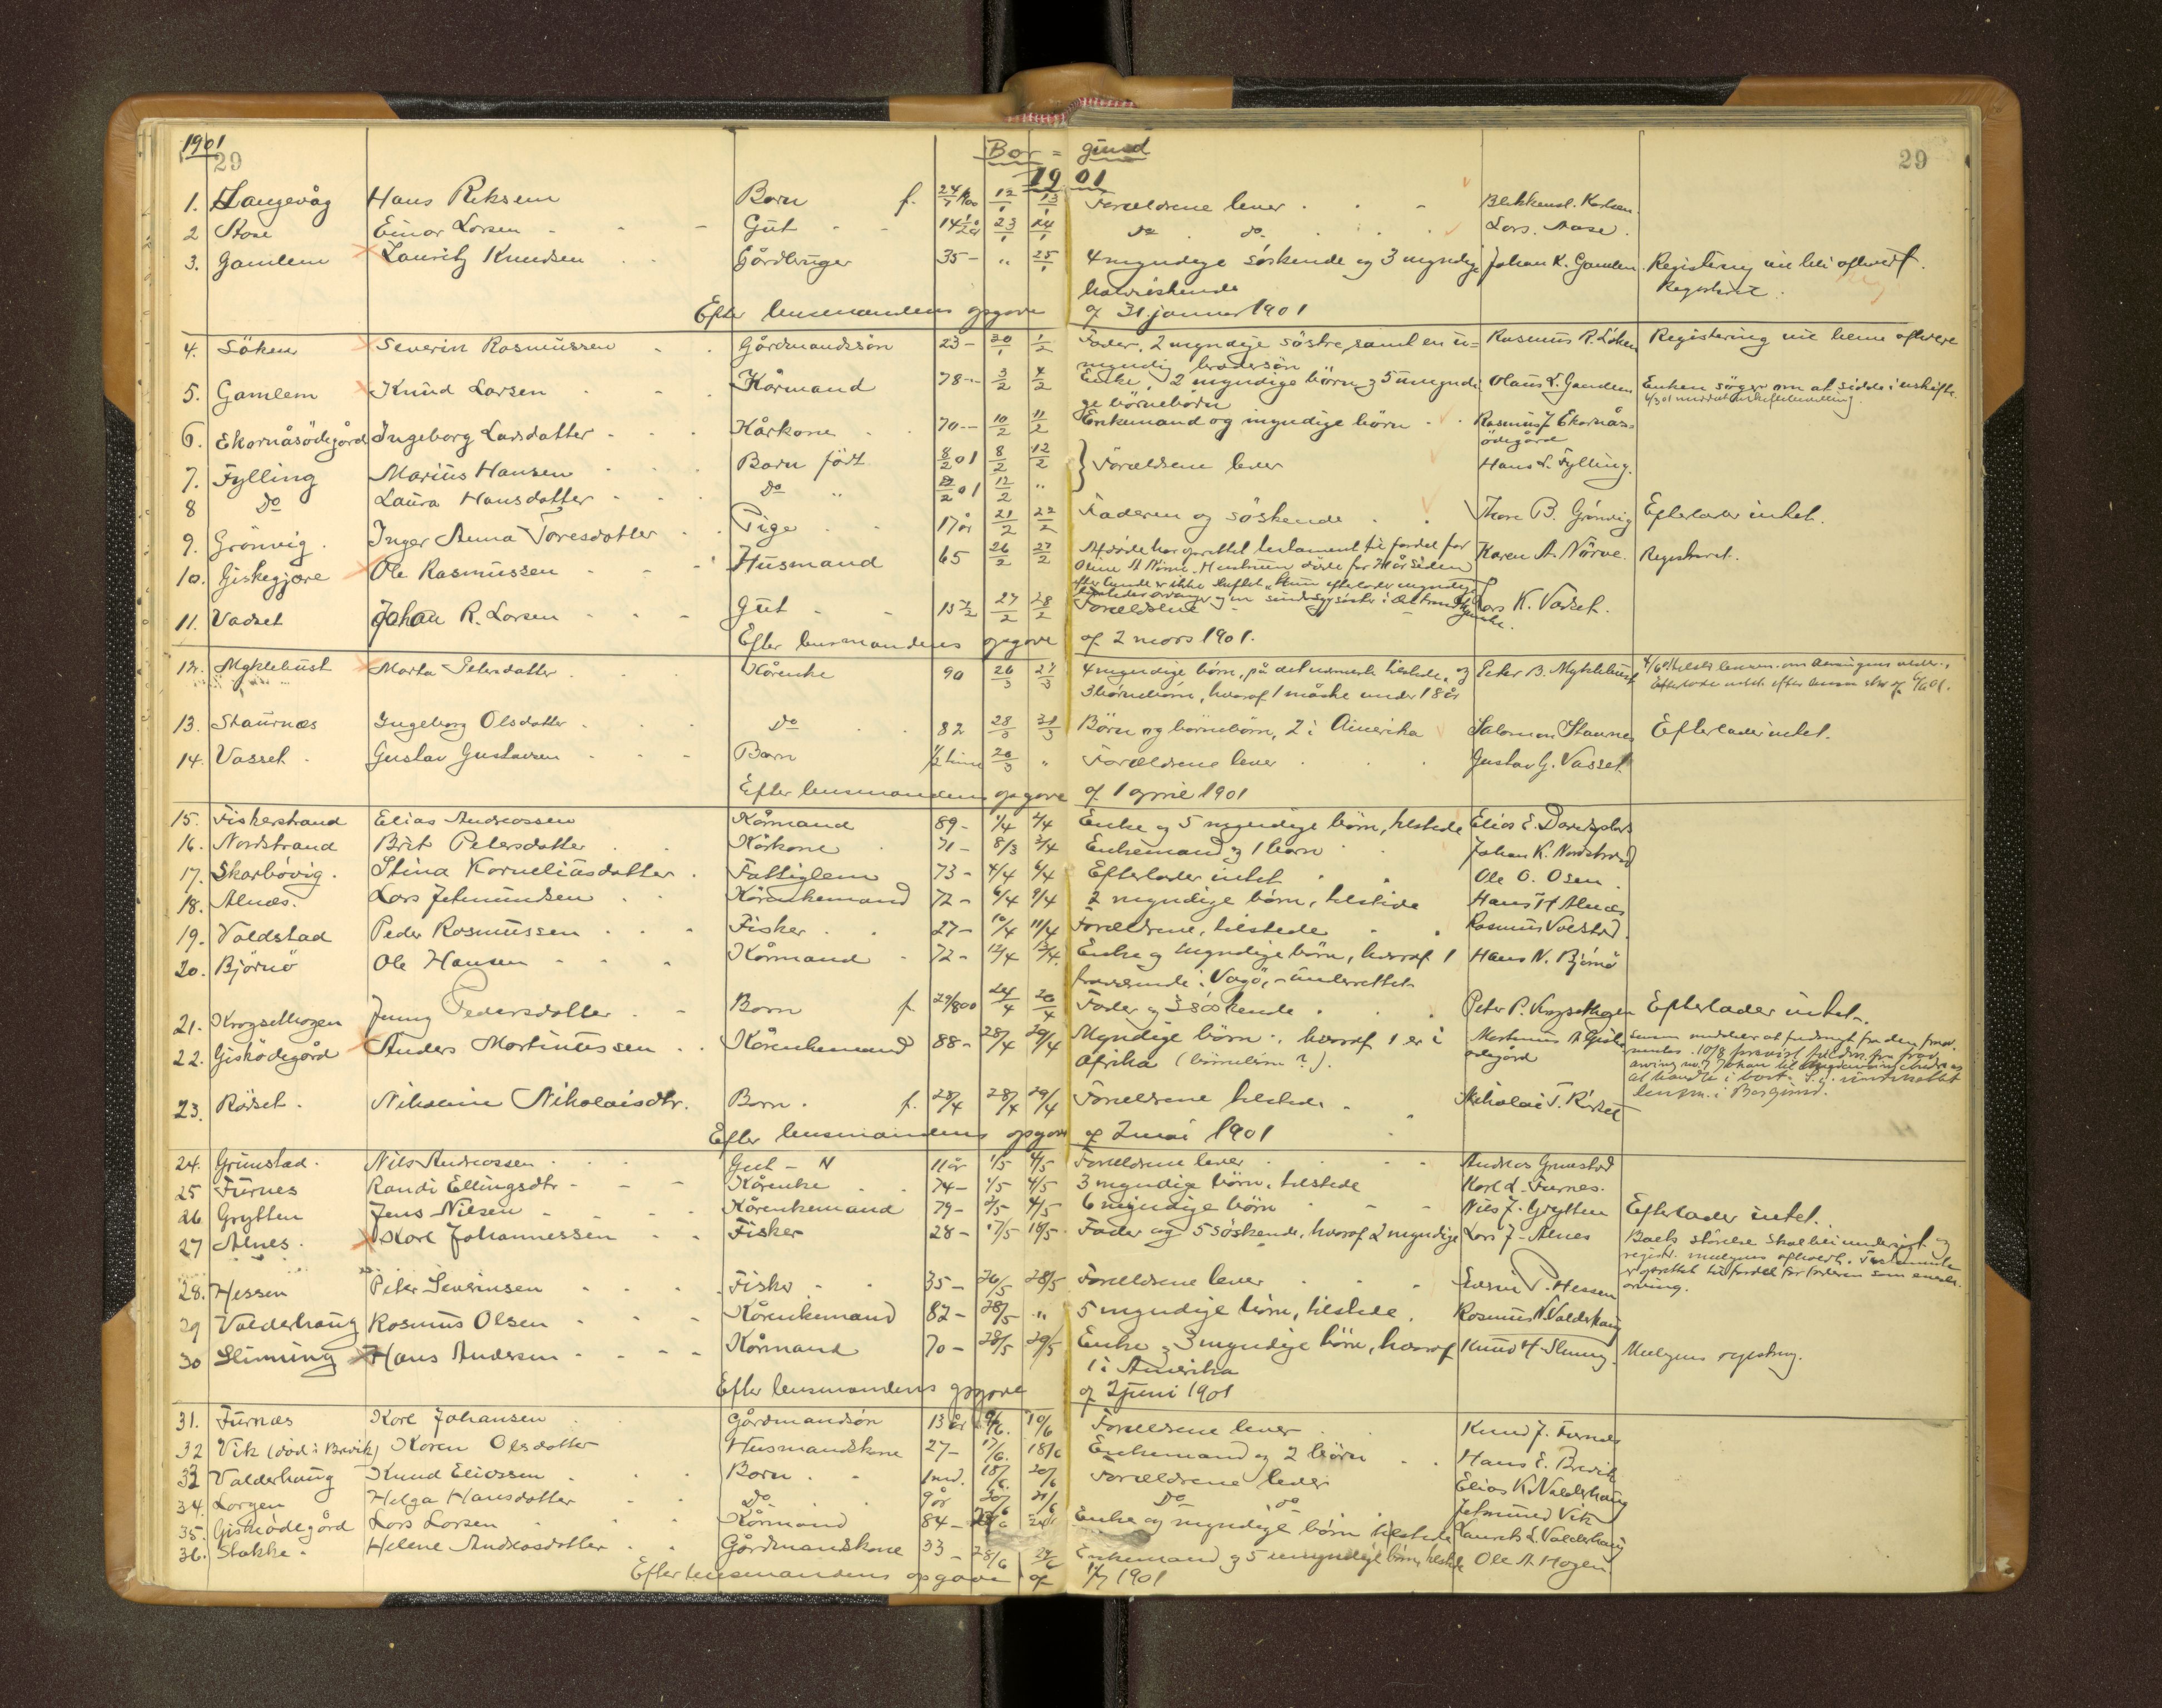 1901
29
Bor = gund
29
1901
1. Langevåg Hans Riksem Barn f. 24/7 1900 12/1 13/1 Forældrene lever Blikkensl. Karlsen
2 Aase Einar Larsen Gut 14 23/1 24/1 Do do Lars Aase.
3. Gamlem Lauritz Knudsen Gårdbruger 35 - " 25/1 4 myndige søskende og 3 myndige Johan K. Gamlem Registering vil bli afholdt.
halvsøskende Registreret.
Efter lensmandens opgave af 31 januar 1901
4. Löken Severin Rasmussen Gårdmandssøn 23 - 30/1 1/2 Fader, 2 myndige søstre, samt en u= Rasmus R. Löken Registering vil blive afholdt
myndig brodersøn
5. Gamlem Knud Larsen Kårmand 78 - 3/2 4/2 Enke, 2 myndige börn og 5 umyndi Olaus L. Gamlem Enken söger om at sidde i uskifte.
ge börnebörn
6. Ekornåsödegård Ingeborg Larsdatter Kårkone 70 - 10/2 11/2 Enkemand og myndige börn Rasmus J Ekornås=
ödegård
7. Fylling Marius Hansen Barn født 8/2 01 8/2 12/2 } Forældrene lever Hans L. Fylling.
8 Do Laura Hansdatter Do " 8/2 01 12/2 "
9. Grönvig. Inger Anna Toresdatter Pige 17 år 21/2 22/2 Faderen og söskende Thore B. Grönvig Efterlader intet.
10. Giskegjære Ole Rasmussen Husmand 65 26/2 27/2 Afdöde har oprettet testament til fordel for Karen A. Nörve. Registreret.
Oline A Nörve. Hustruen döde for år siden
11. Vadset Johan R. Larsen Gut 15 1/2 27/2 28/2 Forældrene Lars K. Vadset.
Efter lensmandens opgave af 2 mars 1901.
12. Myklebust Marta Petersdatter Kårenke 90 26/3 27/3 4 myndige börn, på det nærmeste tilstede, og Peter B. Myklebust
3 börnebörn, hvoraf 1 måske under 18 år Efterlader intet efter lensm. skr af 6/6 01.
13. Staurnæs Ingeborg Olsdatter Do 82 28/3 31/3 Börn og börnebörn, 2 i Amerika Salomon Staurnes Efterlader intet.
14. Vasset Gustav Gustavsen Barn 1/2 time 20/3 " Forældrene lever Gustav G. Vasset
Efter lensmandens opgave af 1 april 1901
15. Fiskerstrand Elias Andreassen Kårmand 89 - 1/4 2/4 Enke og 5 myndige börn, tilstede Elias E.
16. Nordstrand Brit Petersdatter Kårkone 71 - 8/3 3/4 Enkemand og 1 barn Johan K. Nordstrand
17. Skarbövig. Stina Korneliusdatter Fattiglem 73 - 4/4 6/4 Efterlader intet Ole O. Osen.
18. Alnæs. Lars Jetmundsen Kårenkemand 72 - 6/4 9/4 2 myndige börn, tilstede Hans H Alnæs
19. Valdstad Peder Rasmussen Fisker 27 - 10/4 11/4 Forældrene, tilstede Rasmus Volstad.
20. Björnö Ole Hansen Kårmand 72 - 12/4 13/4 Enke og myndige börn, hvoraf 1 Hans N. Björnö
fraværende i Vågö, - underrettet
21. Krogsethagen Jenny Pedersdatter Barn f. 29/8 00 24/4 26/4 Fader og 3 söskende Peter P. Krogsethagen Efterlader intet.
22. Gisködegård Anders Martinussen Kårenkemand 88 - 28/4 29/4 Myndige börn, hvoraf 1 er i Martinus A Giske
Afrika (börnebörn?). ödegård
lensm. i Borgund.
23. Rödset. Nikoline Nikolaisdtr. Barn. f. 28/4 28/4 29/4 Forældrene tilstede Nikolai T. Rödset
Efter lensmandens opgave af 2 mai 1901
24. Grimstad. Nils Andreassen Gut - N 11 år 1/5 4/5 Forældrene lever Andreas Grimstad
25 Furnes Randi Ellingsdtr Kårenke 74 - 1/5 4/5 3 myndige börn, tilstede Karl L. Furnes.
26 Grytten Jens Nilsen Kårenkemand 79 - 2/5 4/5 6 myndige börn Nils J. Grytten Efterlader intet.
27 Alnes. Karl Johannessen Fisker 28 - 17/5 18/5 Fader og 5 söskende, hvoraf 2 myndige Lars J. Alnes Boets störelse skal bli undersögt og
registr. muligens afholdt. Testamente
er oprettet til fordel for faderen som eneste
arving.
28. Hessen Peter Severinsen Fisker 35 - 26/5 28/5 Forældrene lever Severin P. Hessen
29 Valderhaug Rasmus Olsen Kårenkemand 82 - 28/5 " 5 myndige börn, tilstede. Rasmus N. Valderhaug
30 Slinning Hans Andersen Kårmand 70 - 28/5 29/5 Enke og 3 myndige börn, hvoraf Knud H Slinning. Muligens registering.
1 i Amerika
Efter lensmandens opgave af 2 juni 1901
31. Furnæs Karl Johansen Gårdmandsön 13 år 9/6. 10/6 Forældrene lever Knud J. Furnæs
32 Vik (död i Brevik) Karen Olsdatter Husmandskone 27 - 17/6. 18/6 Enkemand og 2 börn Hans E. Brevik
33 Valderhaug Knud Eliassen Barn 1 md. 18/6. 20/6 Forældrene lever Elias K. Valderhaug
34. Lorgen Helga Hansdatter Do 9 år 20/6 21/6 Do do Jetmund Vik
35. Giskødegård Lars Larsen Kårmand 84 - Enke og myndige börn tilstede Laurits L. Valderhaug
36. Slakke. Helene Andreasdatter Gårdmandskone 33 - 28/6 29/6 Enkemand og 5 umyndige börn, tilstede Ole A. Hagen.
Efter lensmandens opgave af 1/7 1901